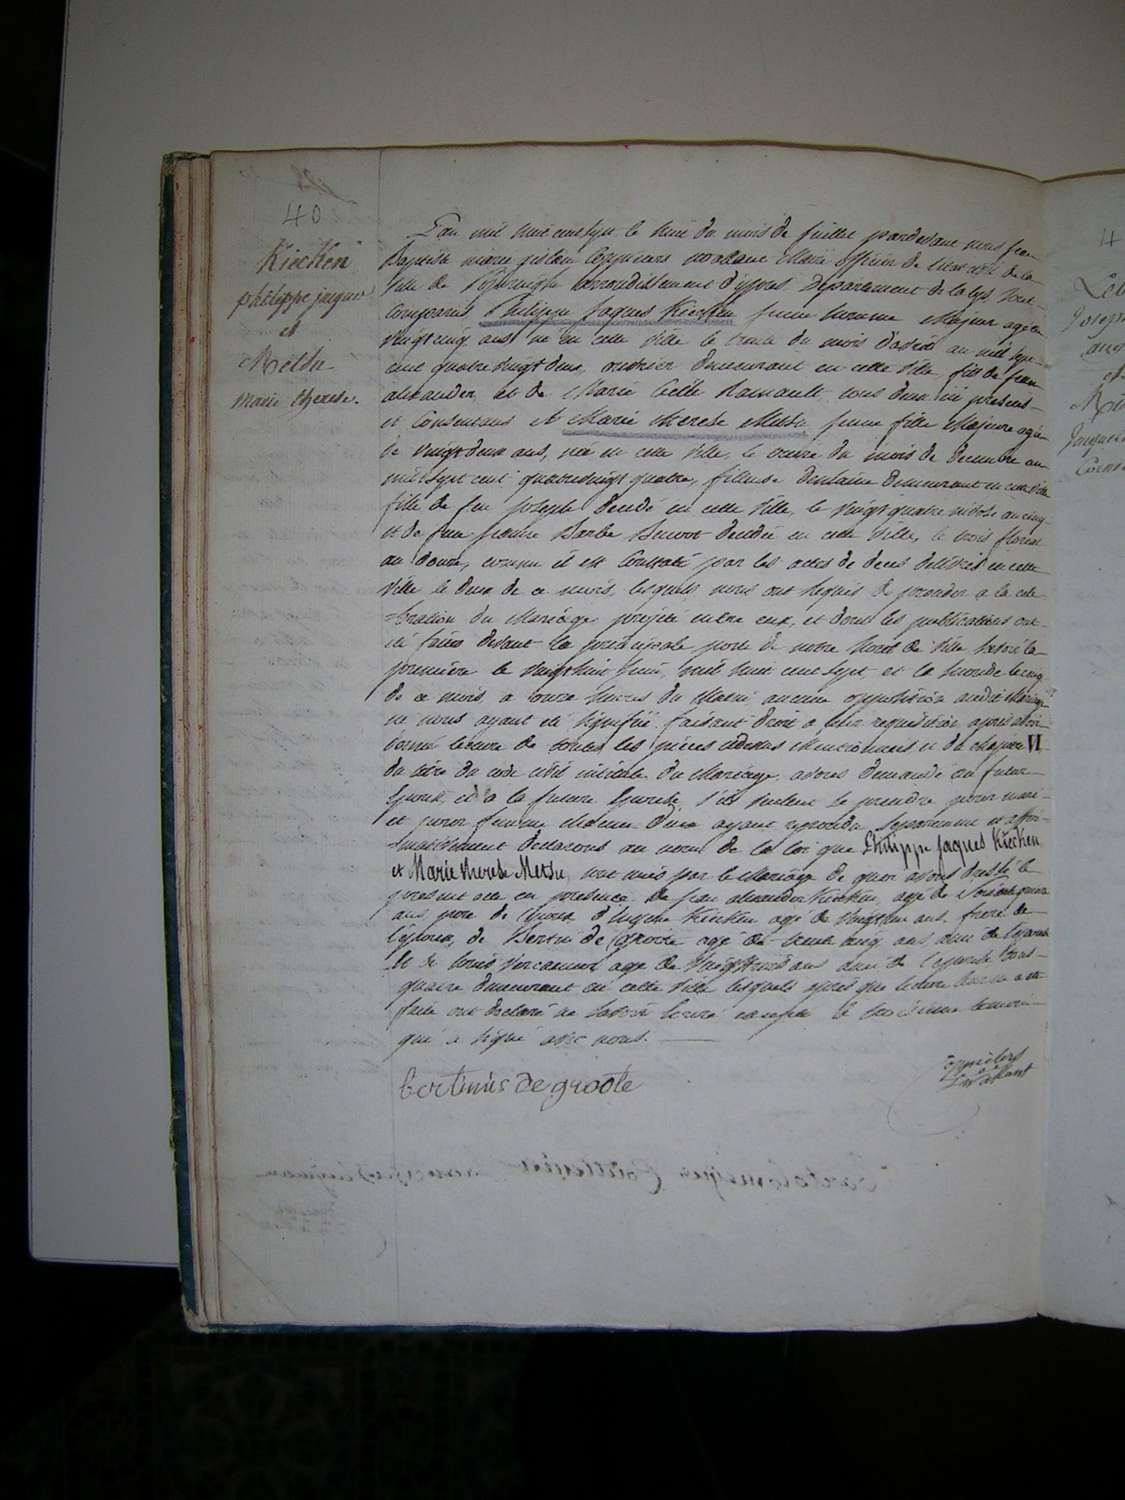 40
Kiecken
philippe jacques
et
Metsu
marie therese.
L'an mil huit cent sept le huit du mois de juillet pardevant nous jean
Baptiste marie gislain Coppieters wallant Maire officier de l'etat civil de la
ville de Poperinghe arrondissement d'ypres Département de la lys sont
comparus Philippe Jaques Kiecken jeune homme Majeur agé de
vingt cinq ans né en cette ville le trente du mois d'aout an mil sept
cent quatre vingt deux, ouvrier demeurant en cette ville fils de jean
alexander et de Marie Cecile Ramault tous deux ici presens
et Consentans et Marie therese Metsu jeune fille Majeure agée
de vingt deux ans, née en cette ville, le onze du mois de decembre an
mil sept cent quatre vingt quatre, fileuse dentelière demeurant en cette ville
fille de feu joseph decedé en cette ville, le vingt quatre nivôse an cinq
et de feue Barbe decedée en cette ville, le trois floréal
an douze, comme il est constaté par les actes de deces delivrés en cette
ville le deux de ce mois, lesquels nous ont requis de proceder a la céle-
-bration du Mariage projeté entre eux, et dont les publications ont
été faites devant la principale porte de notre hotel de ville savoir la
première le vingt huit juin mil huit cent sept et la seconde le cinq
de ce mois, a onze heures du Matin aucune opposition audit Mariage
ne nous ayant été signifiée, faisant droit a leur requisition, après avoir
donné lecture de toutes les pièces cidessus Mentionnées et du chapitre VI
du titre du code civil intitulé du Mariage, avons demandé au futur
Epoux, et à la future Epouse, s'ils veulent se prendre pour mari
et pour femme chacun d'eux ayant repondu separement et affir-
-mativement declarons au nom de la loi que Philippe Jaques Kiecken
et Marie therese Metsu, sont unis par le Mariage de quoi avons dressé le
present acte en presence de jean alexander Kiecken, agé de soixante
ans, pere de l'époux d'Kiecken agé de vingt ans frere de
l'époux, de Bertin de Groote agé de cinq ans ami de l'époux
et de louis vercamer agé de vingt trois ans ami de l'epouse tous
quatre demeurant en cette ville lesquels après que lecture leur en a été
faite ont declaré ne savoir écrire excepté le troisième temoin
qui a signé avec nous.
Bertinus de groote
Coppieters
Wallant
4